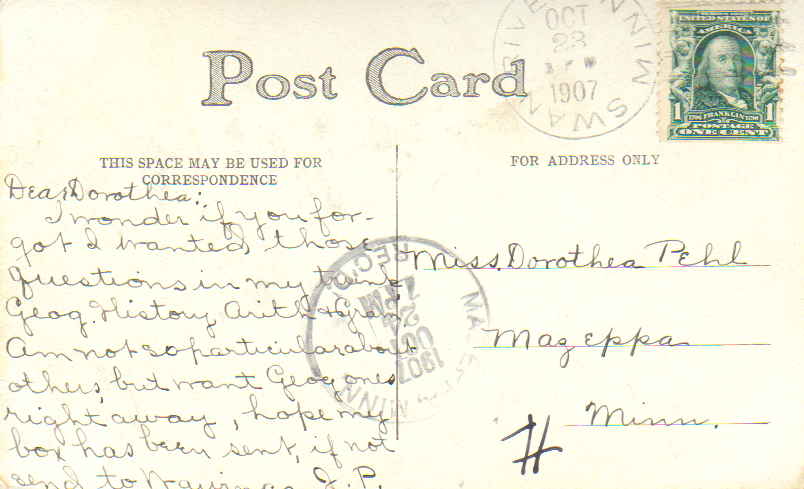 Post Card
SWAN RIVER MINN
OCT
23
1907
UNITED STATES OF
AMERICA
1 FRANKLIN 1
POSTAGE
ONE CENT
THIS SPACE MAY BE USED FOR
CORRESPONDENCE
FOR ADDRESS ONLY
Dear Dorothea:
I wonder if you for-
got I wanted those
questions in my trunk
Geog. History Arith & Gram
Am not so particular about
others, but want Geog ones
right away, hope my
box has been sent, if not
send to J.P.
Miss. Dorothea Pehl
Mazeppa
Minn.
H
MINN
REC'D
7 PM
OCT
1907